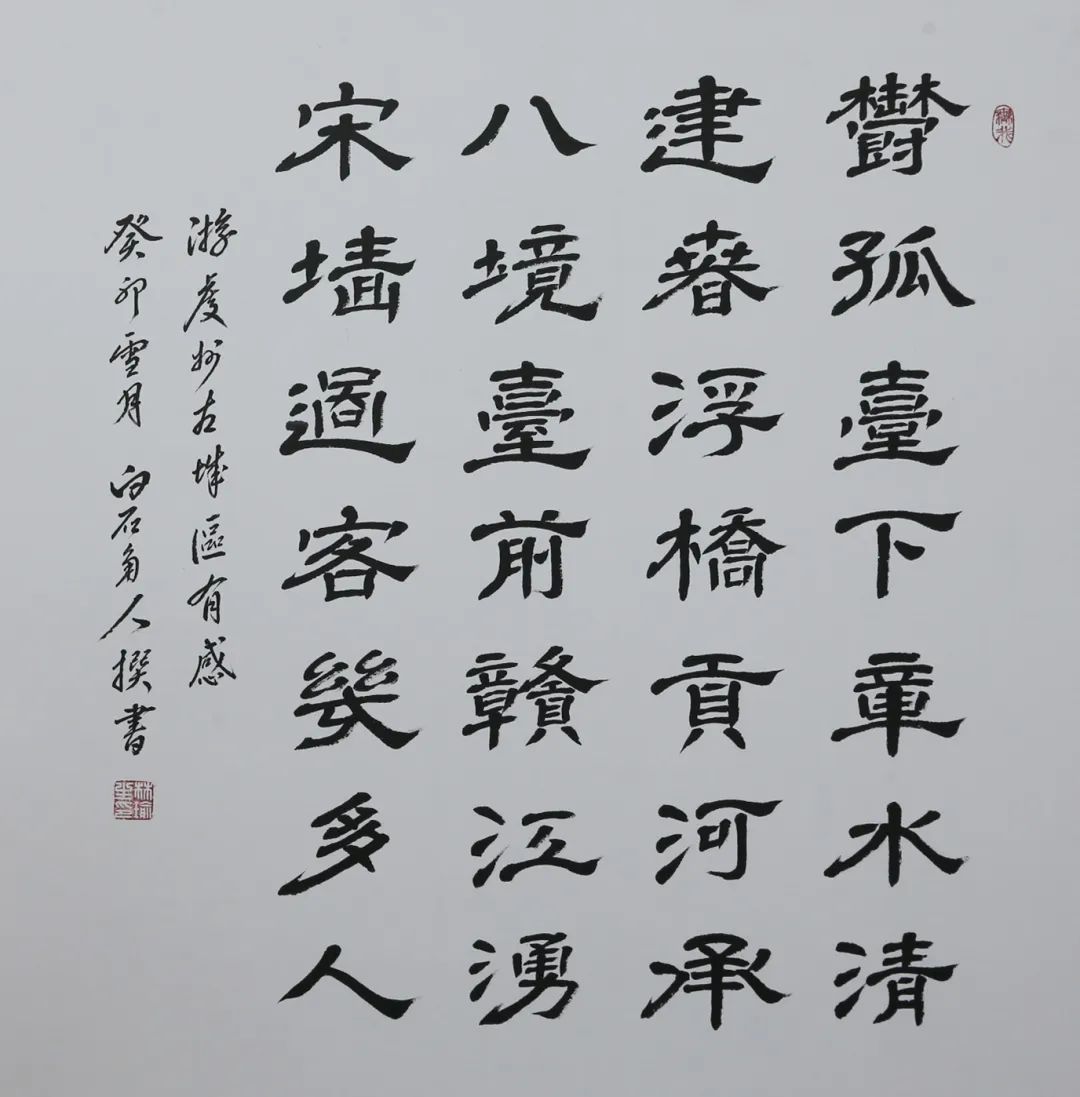 鬱孤臺下章水清
建春浮橋貢河承
八境臺前贛江湧
宋墙過客幾多人
游虔州古城區有感
癸卯雪月 白石角人撰書